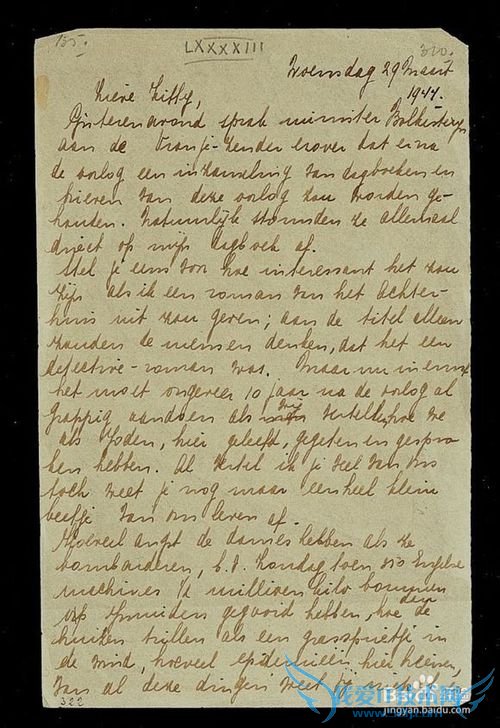 135.
LXXXXIII
320.
Woensdag 29 Maart
1944.
Lieve Kitty,
Gisterenavond sprak minister Bolkesteyn
aan de Oranje-zender erover dat er na
de oorlog een inzameling van dagboeken en
brieven van deze oorlog zou worden ge-
houden. Natuurlijk stormden ze allemaal
direct op mijn dagboek af.
Stel je eens voor hoe interessant het zou
zijn als ik een roman van het Achter-
huis uit zou geven; aan de titel alleen
zouden de mensen denken, dat het een
detective-roman was. Maar nu in ernst
het moet ongeveer 10 jaar na de oorlog al
grappig aandoen als wij vertellen hoe we
als Joden, hier geleefd, gegeten en gespro
ken hebben. Al vertel ik je veel van ons
toch weet je nog maar een heel klein
beetje van ons leven af.
Hoeveel angst de dames hebben als ze
bombarderen, b.v. Zondag toen 350 Engelse
machines ½ millioen kilo bommen
op Ijmuiden gegooid hebben, hoe dan de
huizen trillen als een grassprietje in
de wind, hoeveel epidemieën hier heersen,
van al deze dingen weet
322
jingyan.baidu.com